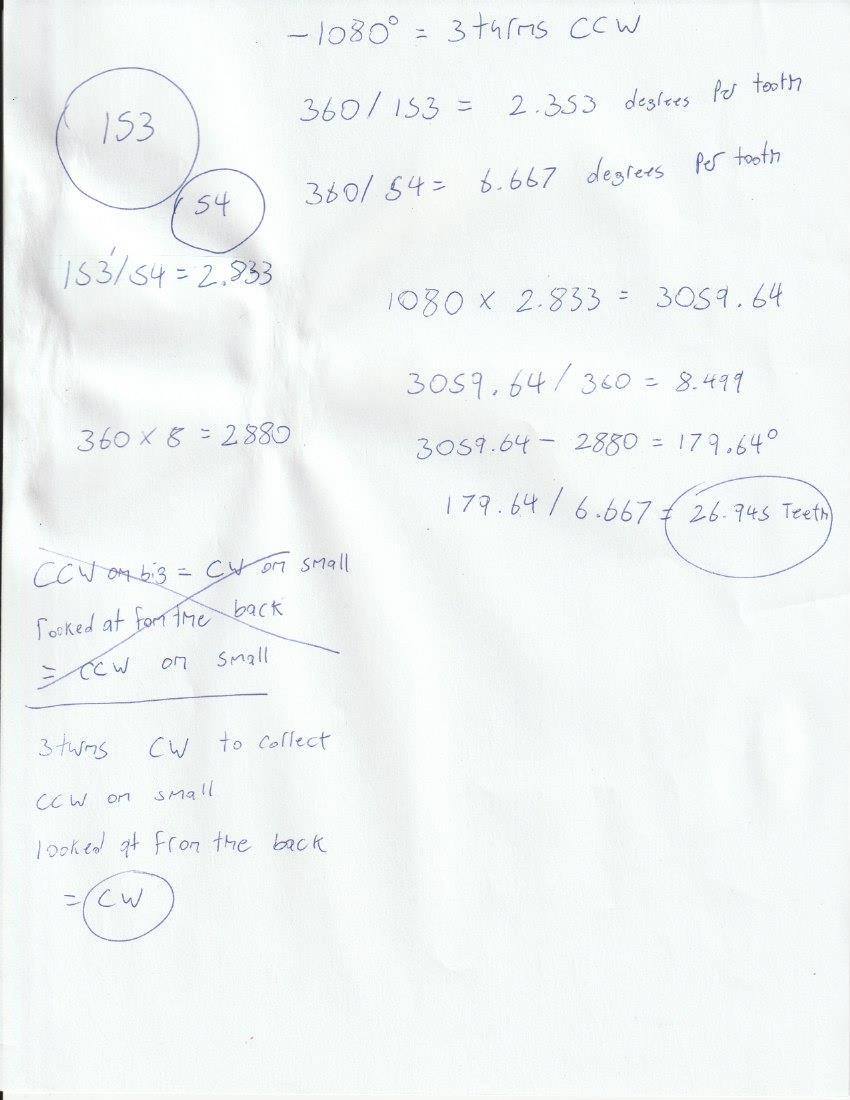 -1080° = 3 turns CCW
153
360/153 = 2.353 degrees per tooth
54
360/54 = 6.667 degrees per tooth
153/54 = 2.833
1080 × 2.833 = 3059.64
3059.64/360 = 8.499
360 × 8 = 2880
3059.64 - 2880 = 179.64°
179.64/6.667 = 26.945 Teeth
CCW on big = CW on small
looked at fom the back
= CCW on small
3 turns CW to collect
CCW on small
looked at from the back
= CW